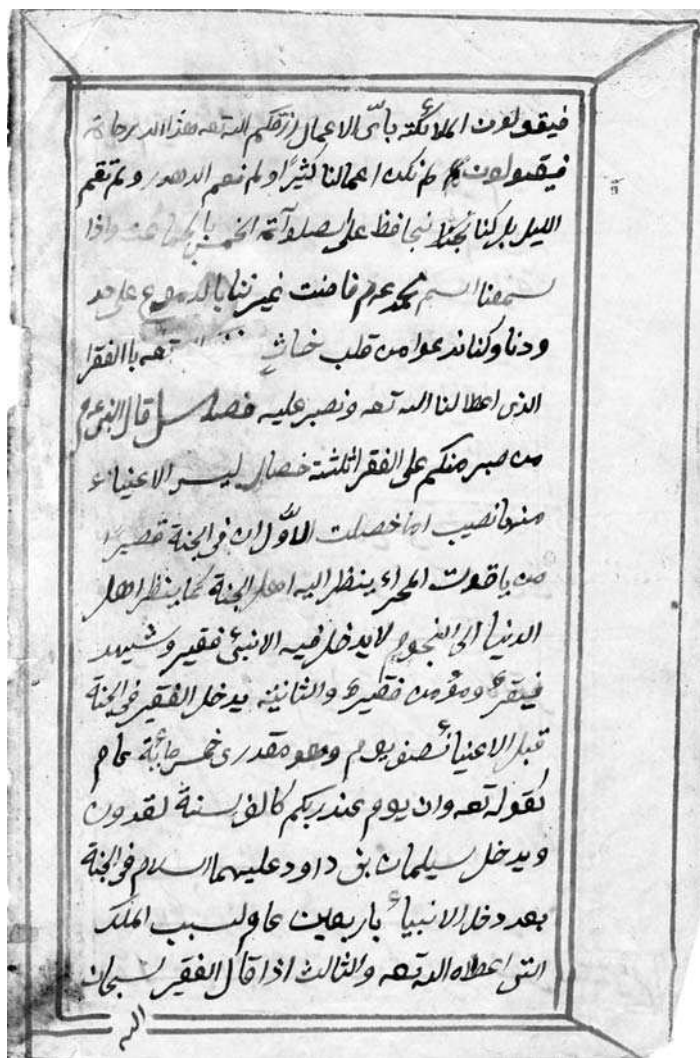 فيقولون الملائكة بأىّ الاعمال رزقكم الله تعه هذا الدرجات
فيقولون لم نكن اعمالنا كثيرًا ولم نصم الدهور ولم نقم
الليل بل كنا نحافظ على الصلوآة الخمس بالجماعة واذا
سمعنا اسم محمد عم فاضت بالدموع على خد
ودنا وكنا ندعوا من قلب تعه باالفقرا
الذى اعطا لنا الله تعه ونصبر عليه فصل قال النبى عم
من صبر منكم على الفقر ثلثة خصال ليس الاغنياء
منها نصيب اما خصلت الاوّل ان فى الجنة قصيرا
من ياقوت المحراء ينظر اليه اهل الجنة كما ينظر اهل
الدنيا الى النجوم لا يدخل فيه الا نبىّ فقير وشهيد
فيقرة ومؤمن فقيرة والثانية يدخل الفقير فى الجنة
قبل الاغنياء نصف يوم وهو مقدرى خمس مائة عام
كقوله تعه وان يوم عند ربكم كالف سنة لقدون
ويدخل سيلمان بن داود عليهما السلام فى الجنة
بعد دخل الانبياء باربعين عام ولسبب الملك
التى اعطاه الله تعه والثالث اذا قال الفقير سبحان
الله